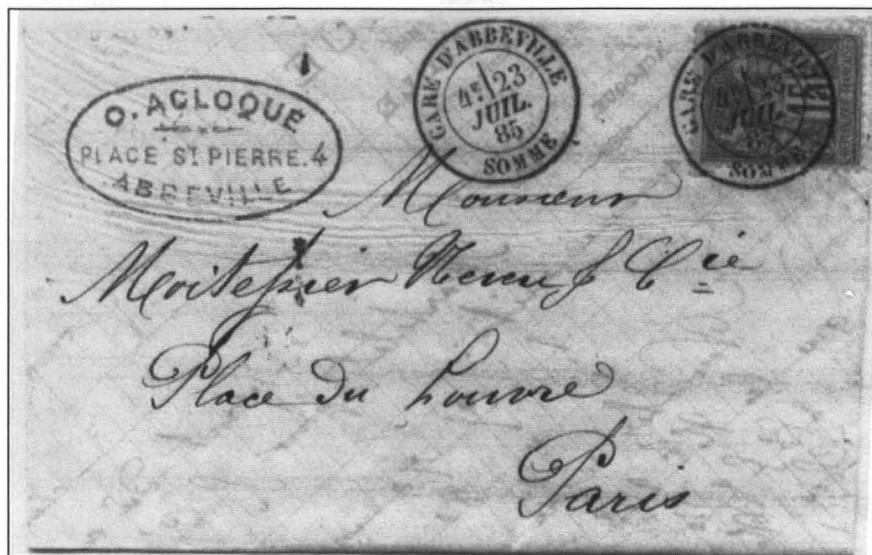 O. ACLOQUE
PLACE ST PIERRE. 4
ABBEVILLE
GARE D'ABBEVILLE
4E 23
JUIL.
85
SOMME
GARE D'ABBEVILLE
23
JUIL
85
SOMME
15
Monsieur
Moitessier Neveu & Cie
Place du Louvre
Paris